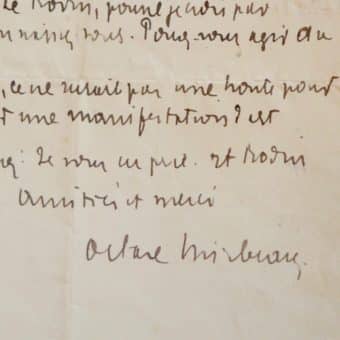 Le Rodin, pour
vous. Pouvez-vous agir au
, ce ne serait pas une honte pour
une manifestation d'art
: Je vous en prie. et Rodin
Amitiés et merci
Octave Mirbeau.